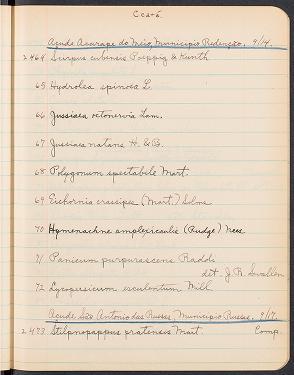 Ceará.
Açude Acarape do Meio, Municipio Redenção. 9/14.
2464 Scirpus cubensis Poeppig & Kunth
65 Hydrolea spinosa L.
66 Jussiaea octonervia Lam.
67 Jussiaea natans H. & B.
68 Polygonum spectabile Mart.
69 Eichornia crassipes (Mart.) Solms
70 Hymenachne amplexicaulis (Rudge) Nees
71 Panicum purpurascens Raddi
det. J. R. Swallen
72 Lycopersicum esculentum Mill.
Açude São Antonio das Russas, Municipio Russas. 9/17.
2473 Stilpnopappus pratensis Mart. Comp.